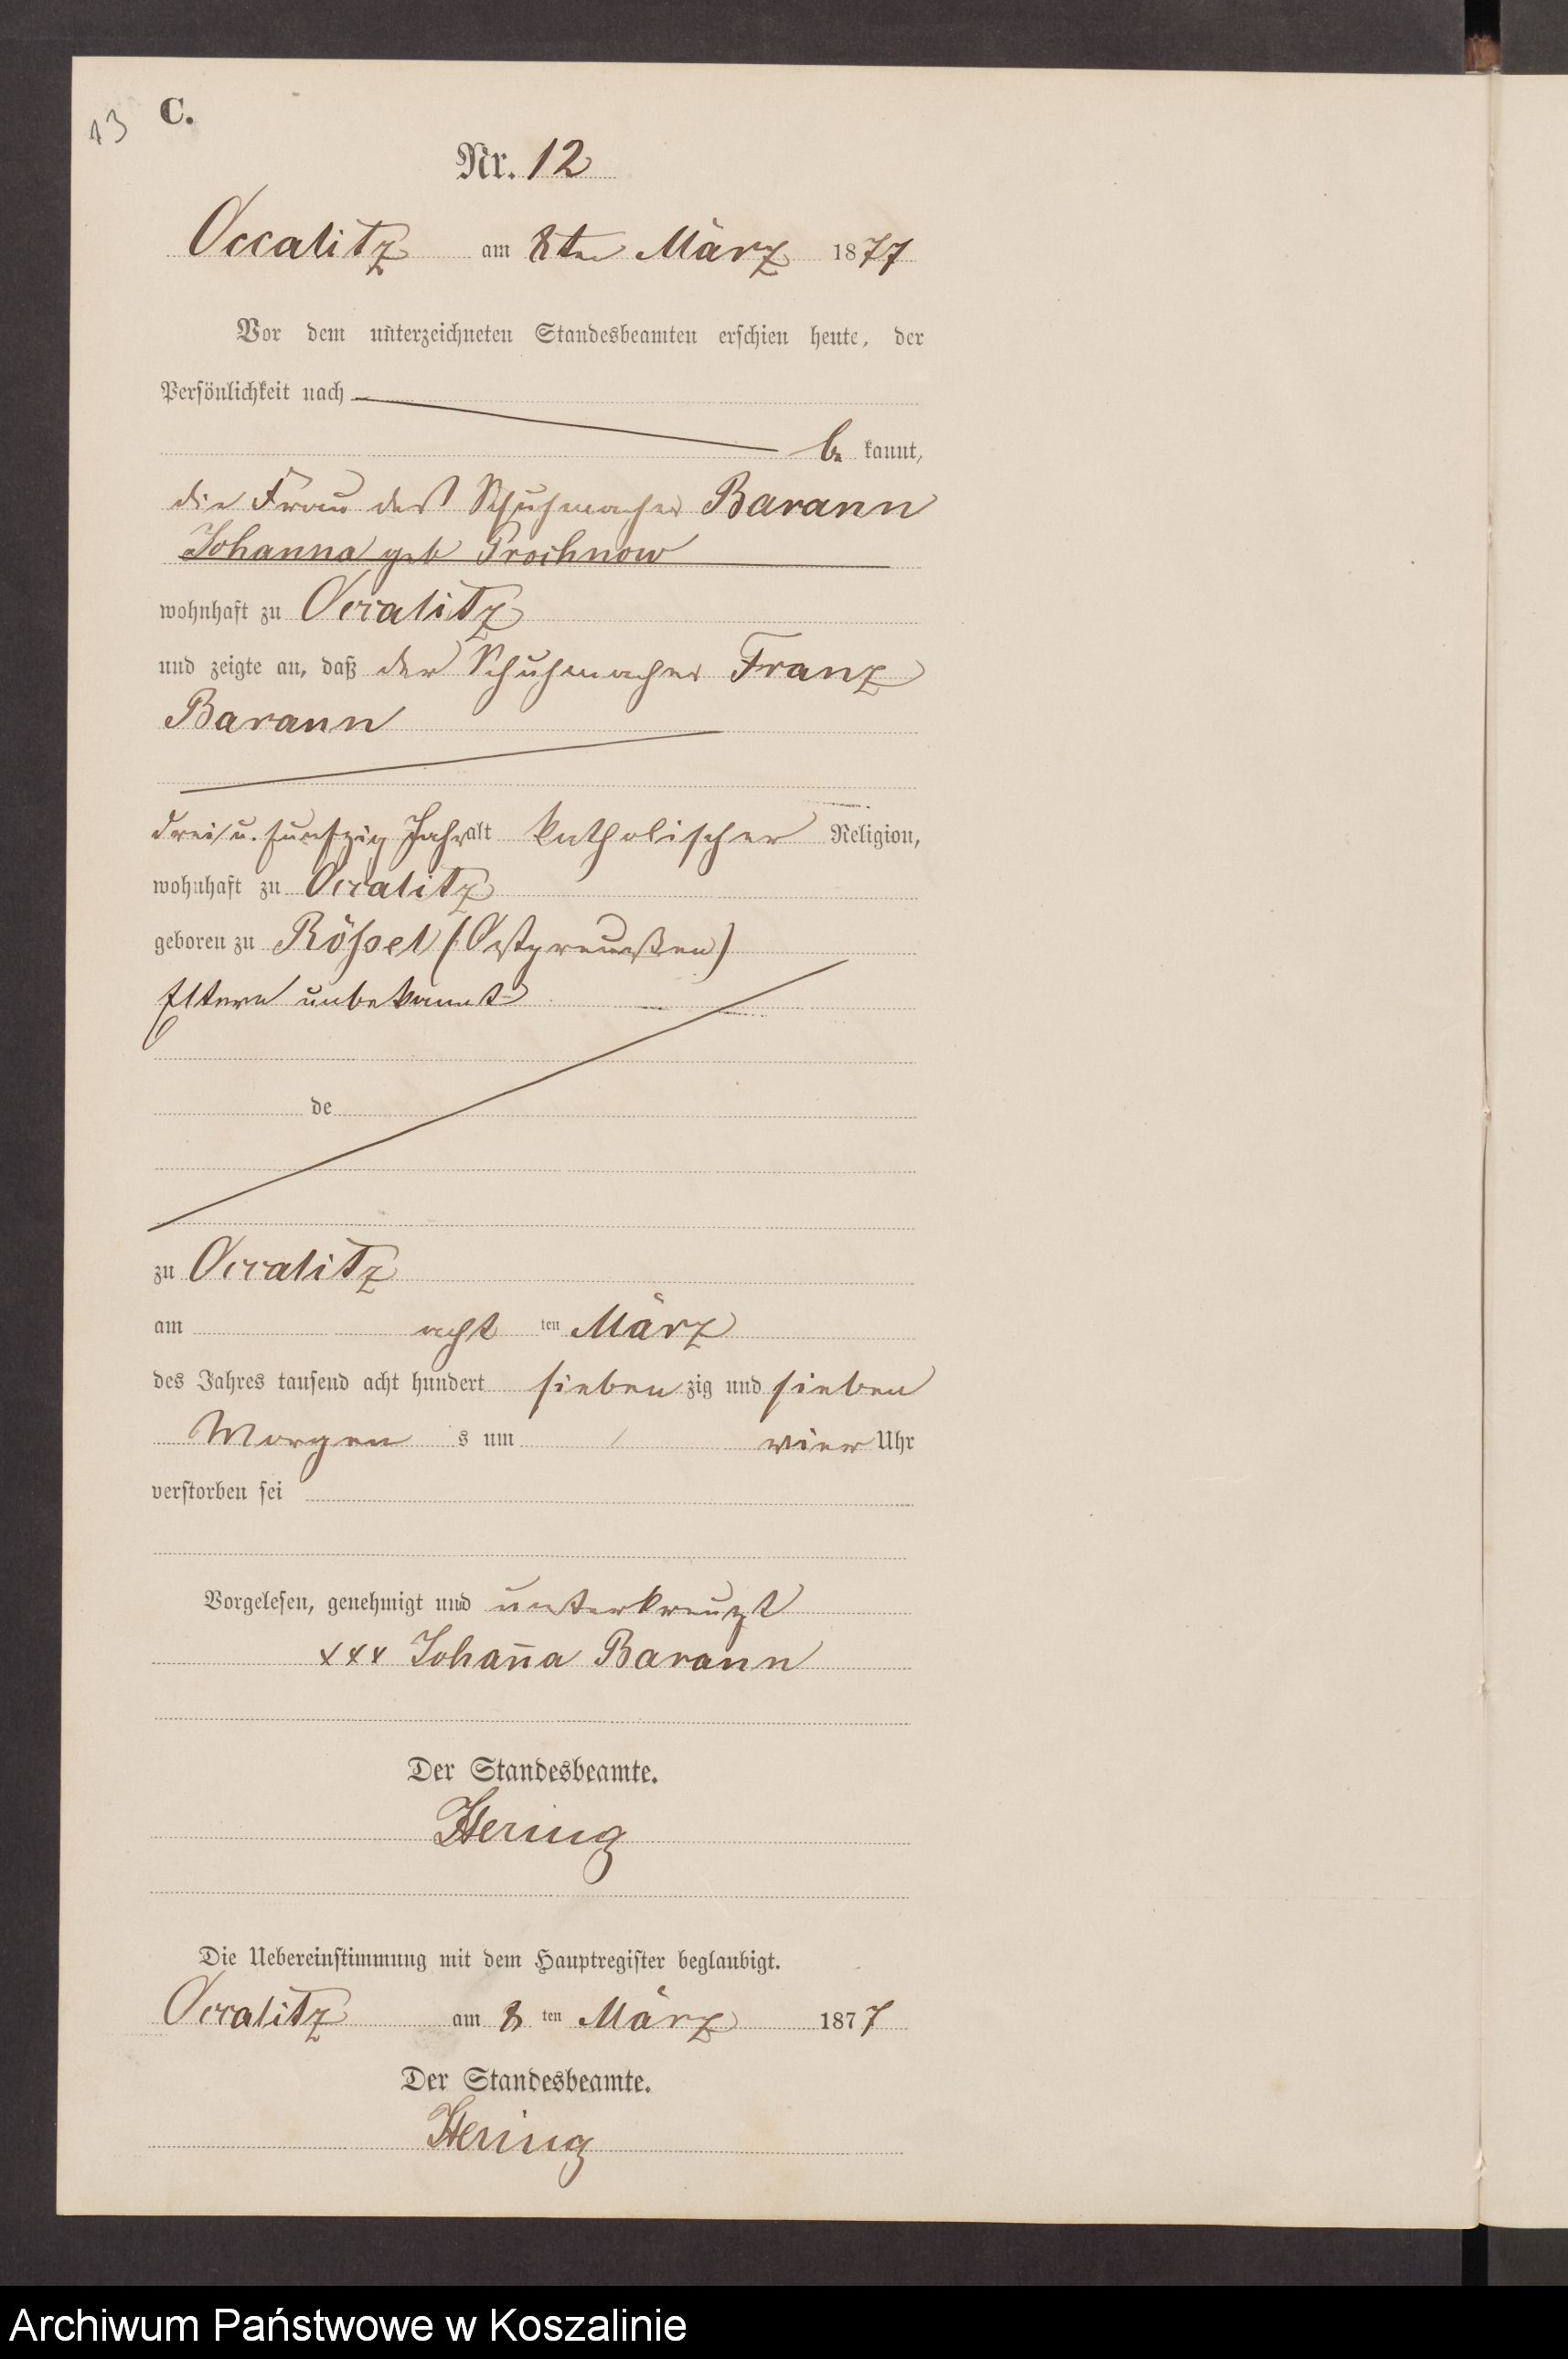 13
C.
Nr. 12
Occalitz am 8ten März 1877
Vor dem unterzeichneten Standesbeamten erschien heute, der
Persönlichkeit nach
be kannt,
die Frau des Schuhmacher Barann
Johanna geb Prochnow
wohnhaft zu Occalitz
und zeigte an, daß der Schuhmacher Franz
Barann
drei u. funfzig Jahr alt katholischer Religion,
wohnhaft zu Occalitz
geboren zu Rößel (Ostpreußen)
Eltern unbekannt
de
zu Occalitz
am acht ten März
des Jahres tausend acht hundert sieben zig und sieben
Morgen s um vier Uhr
verstorben sei
Vorgelesen, genehmigt und unterkreuzt
xxx Johan̅a Barann
Der Standesbeamte.
Hering
Die Uebereinstimmung mit dem Hauptregister beglaubigt.
Occalitz am 8 ten März 1877
Der Standesbeamte.
Hering
Archiwum Państwowe w Koszalinie